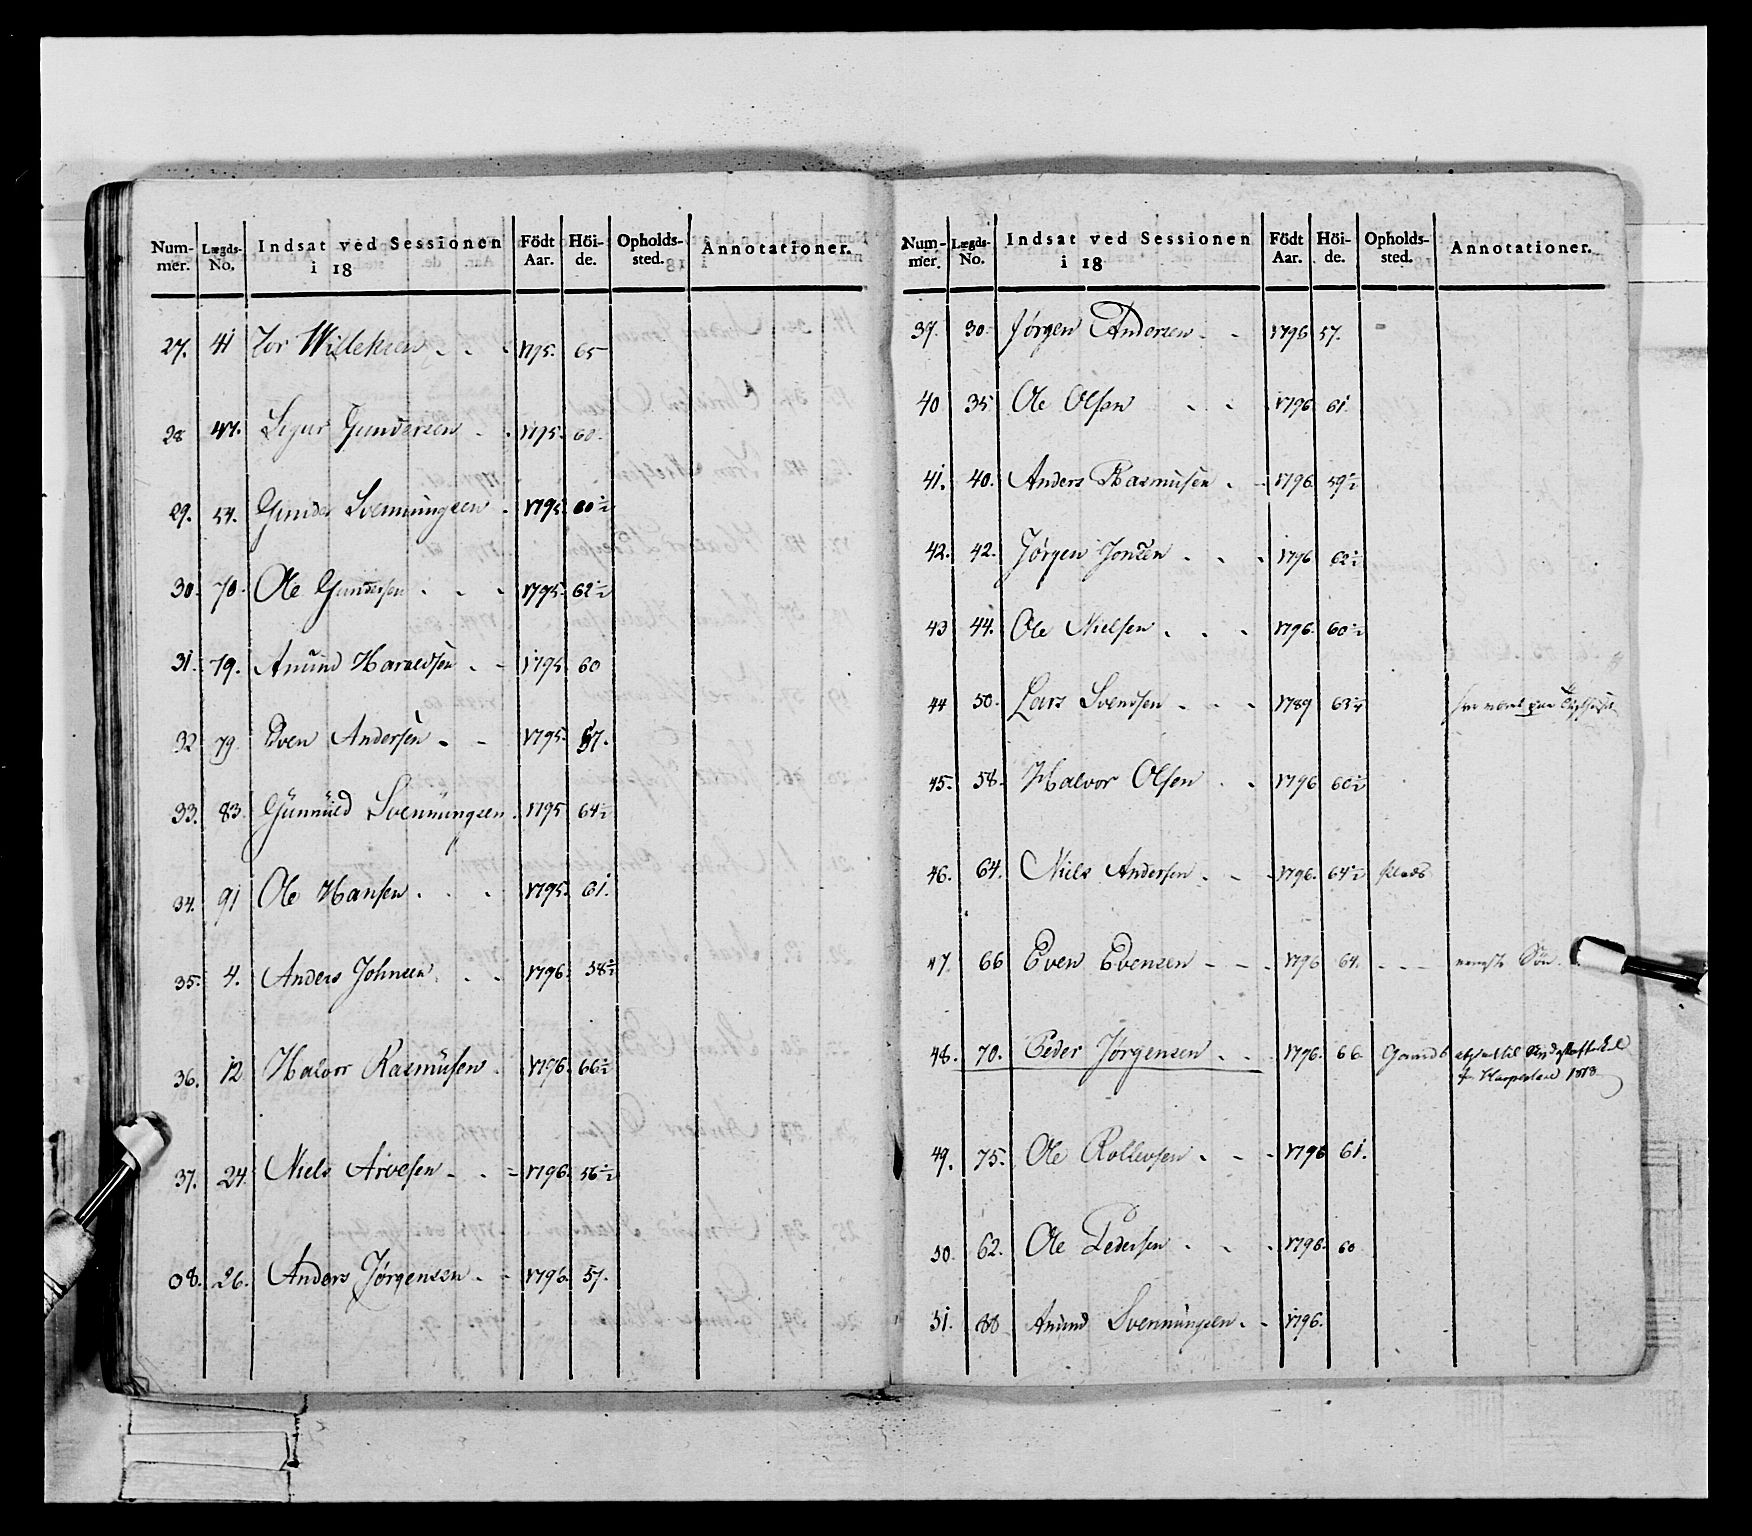 Num- Lægds- Indsat ved Sessionen Födt Höi- Opholds- Annotationer.
mer. No. i 18 Aar. de. sted.
27. 41 Tor Willeksen 1795. 65
28 47. Sigur Gundersen 1795. 60.
29. 54. Gunder Svennungsen 1795. 60½
30. 70. Ole Gundersen 1795. 62½
31. 79. Anund Haraldsen 1795 60
32 79 Even Andersen 1795. 57.
33. 83. Gunnuld Svennungsen 1795 64½
34. 91 Ole Hansen 1795. 61.
35. 4. Anders Johnsen 1796. 58½
36. 12 Halvor Rasmusen 1796. 66½
37. 24. Niels Arvesen 1796. 56½
38. 26. Anders Jørgensen 1796. 57.
Num- Lægds- Indsat ved Sessionen Födt Höi- Opholds- Annotationer.
mer. No. i 18 Aar. de. sted.
39. 30. Jørgen Andersen 1796 57.
40 35 Ole Olsen 1796 61.
41. 40. Anders Rasmusen 1796. 59½
42. 42. Jørgen Jonsen 1796 62½
43 44. Ole Nielsen 1796. 60½
44 50. Lars Svendsen 1789 63¼
45. 58. Halvor Olsen 1796 60½
46. 64. Niels Andersen 1796. 64½
47. 66 Even Evensen 1796 64. Søn.
48. 70. Peder Jørgensen 1796. 66.
1818
49. 75. Ole Rollevsen 1796 61.
50. 62. Ole Pedersen 1796. 60
51. 88 Anund Svennungsen 1796.